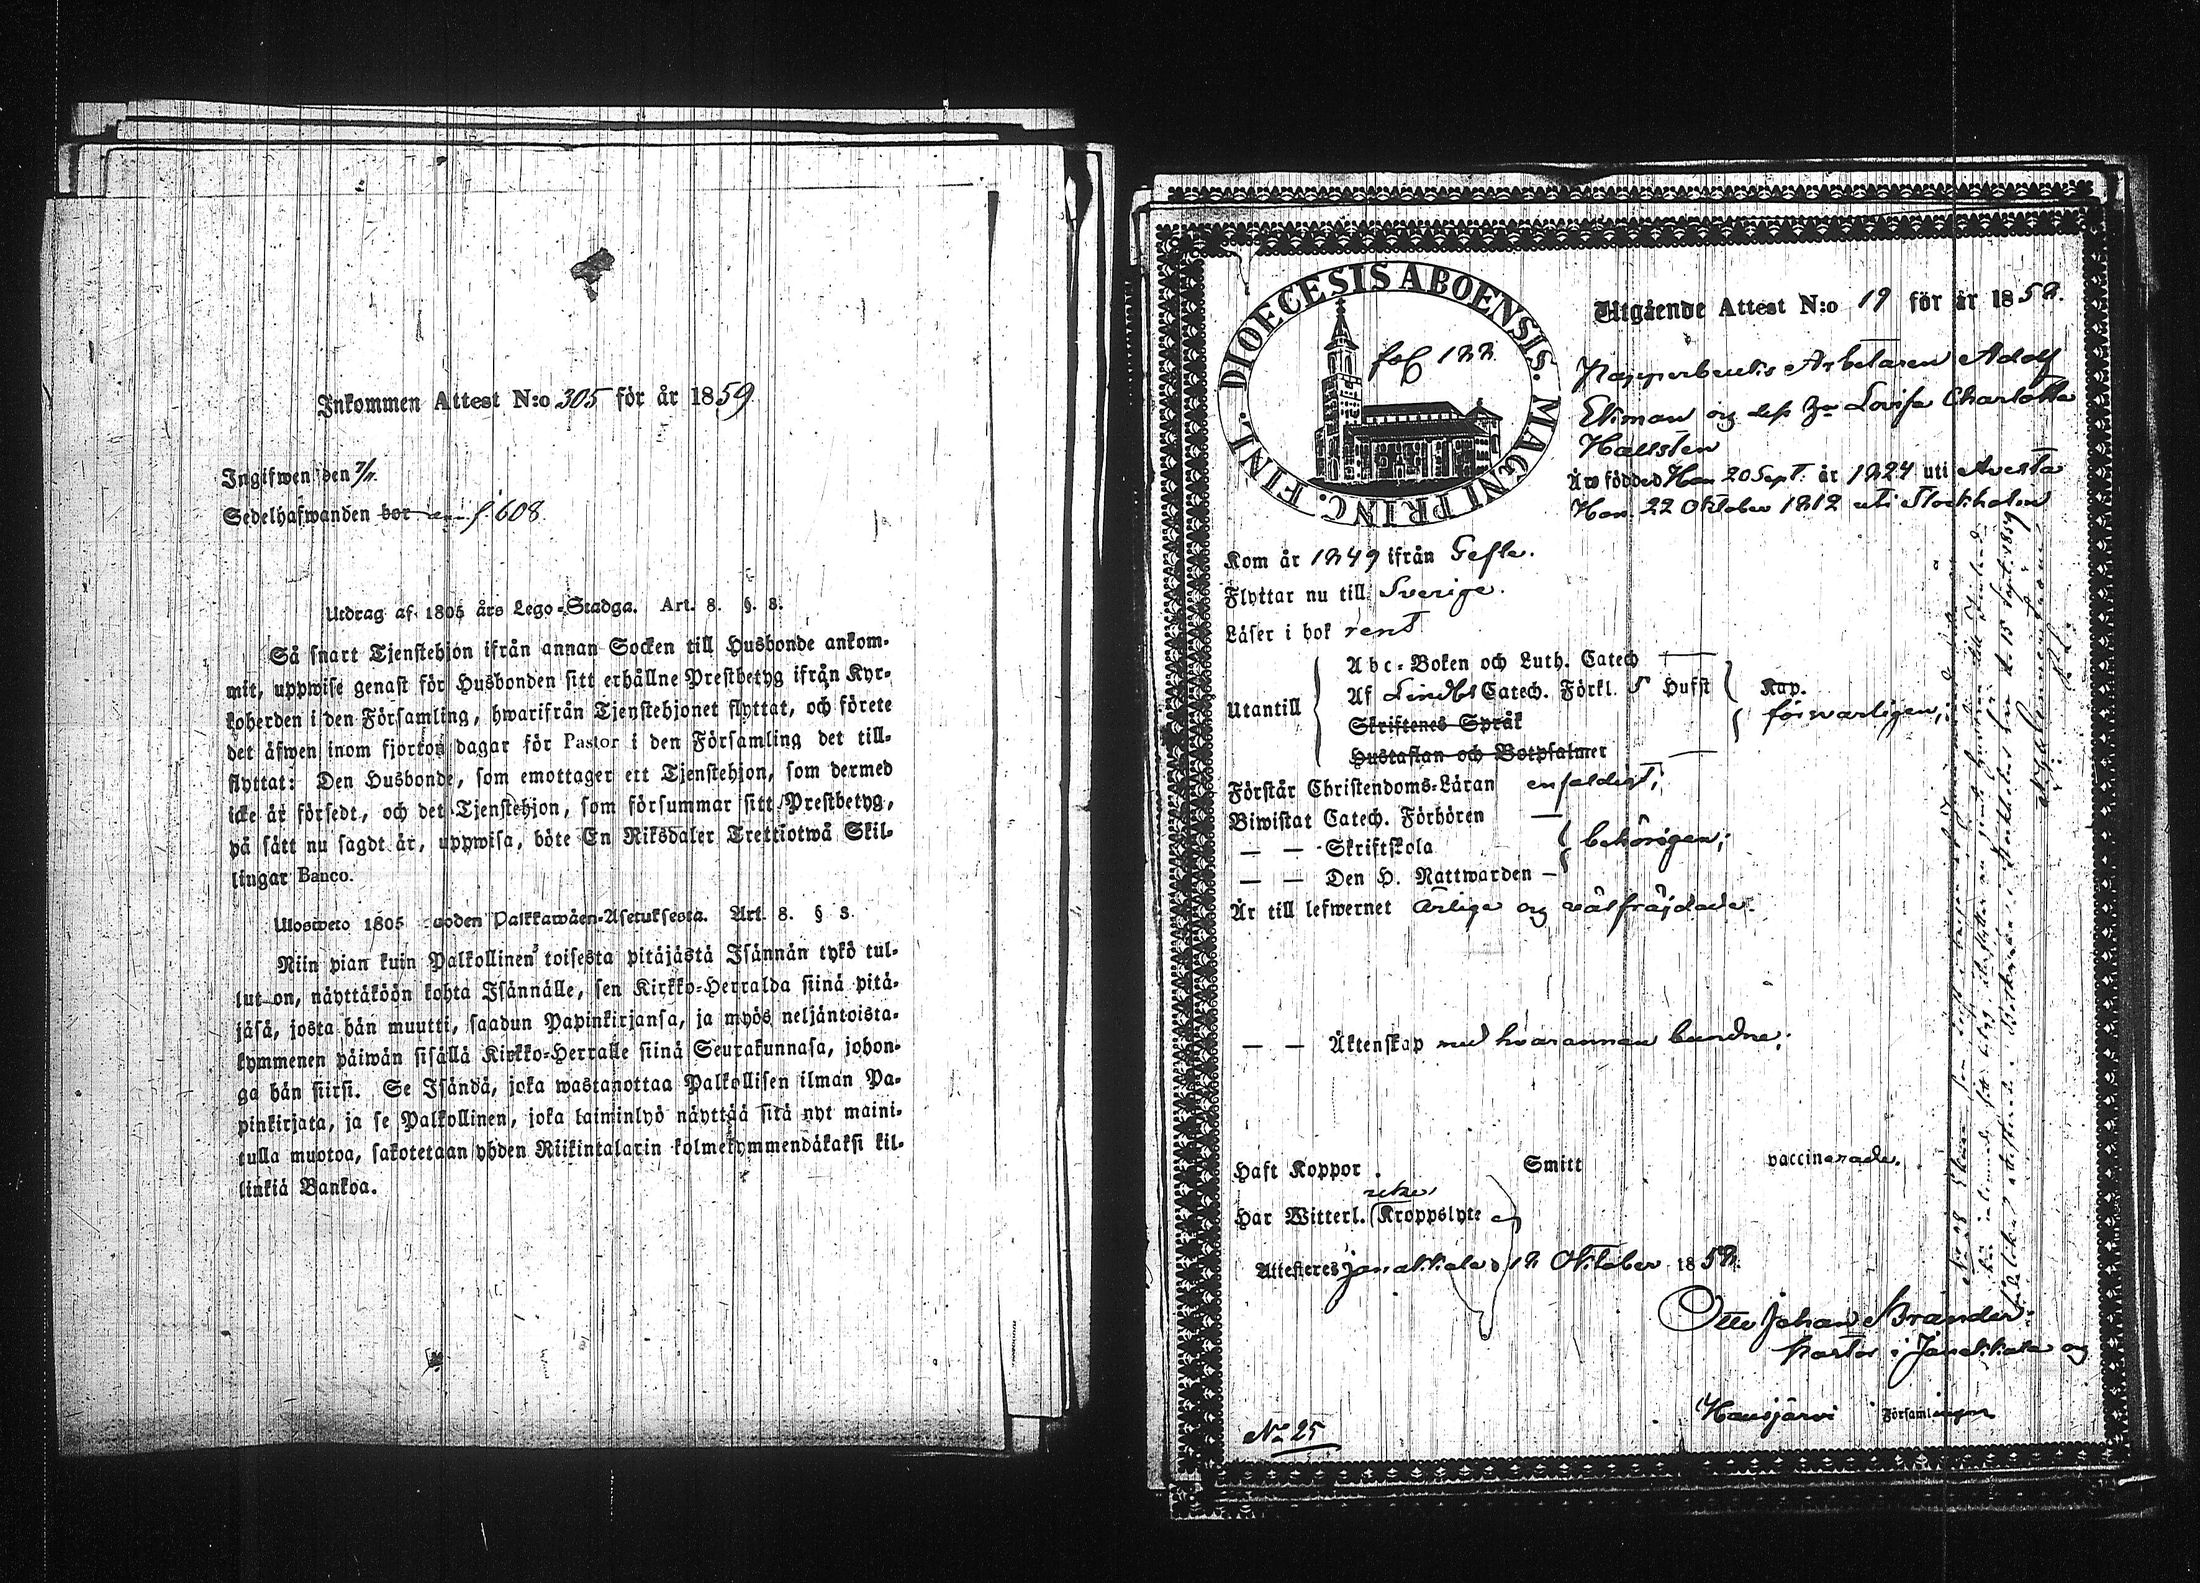 Inkommen Attest N:o 305 för år 1859
Ingifwen den 7/
Sedelhafwanden bor f. 608
Utdrag af 1805 års Lego-Stadga. Art. 8. §. 8.
Så snart Tjenstehjon ifrån annan Socken till Husbonde ankom-
mit, uppwise genast för Husbonden sitt erhållne Prestbetyg ifrån Kyr-
koherden i den Församling, hwarifrån Tjenstehjonet flyttat, och förete
det äfwen inom fjorton dagar för Pastor i den Församling det till-
flyttat: Den Husbonde, som emottager ett Tjenstehjon, som dermed
icke är försedt, och det Tjenstehjon, som försummar sitt Prestbetyg,
på sätt nu sagdt är, uppwisa, böte En Riksdaler Trettiotwå Skil-
lingar Banco.
Ulosweto 1805 wuoden Palkkawäen-Asetuksesta. Art. 8. § 8.
Niin pian kuin Palkollinen toisesta pitäjästä Isännän tykö tul-
lut on, näyttäköön kohta Isännälle, sen Kirkko-Herralda siinä pitä-
jäsä, josta hän muutti, saadun Papinkirjansa, ja myös neljäntoista-
kymmenen päiwän sisällä Kirkko-Herralle siinä Seurakunnasa, johon-
ga hän siirsi. Se Isändä, joka wastanottaa Palkollisen ilman Pa-
pinkirjata, ja se Palkollinen, joka laiminlyö näyttää sitä nyt maini-
tulla muotoa, sakotetaan yhden Riikintalarin kolmekymmendäkaksi kil-
linkiä Bankoa.
DIOECESIS ABOENSIS. MAGNI PRINC. FINL.
fol 122
Utgående Attest N:o 19 för år 1858.
Pappersbruks Arbetaren Adolf
Ekman och dess Hu Lovisa Charlotta
Hallsten
Äro födde Han 20 Sept. år 1824 uti Avesta
Hon 22 Oktober 1812 uti Stockholm
Kom år 1849 ifrån Gefle.
Flyttar nu till Sverige.
Läser i bok rent
Utantill
Abc-Boken och Luth. Catech
Af Lindbs Catech. Förkl. 5 Hufst
Skriftenes Språk
Hustaflan och Botpsalmer
Kap.
försvarligen;
Förstår Christendoms-Läran enfaldigt;
Biwistat Catech. Förhören
— — Skriftskola
— — Den H. Nattwarden —
behörigen;
Är till lefwernet ärlige och välfräjdade.
— — Äktenskap med hvarannan bundne;
Haft Koppor. Smitt vaccinerade.
Har Witterl. Kroppslyte ej
Attesteres Janakkala d 18 Oktober 1858.
Otto Johan Brander.
Pastor i Janakkala och
Hausjärvi Församlingar
No 25